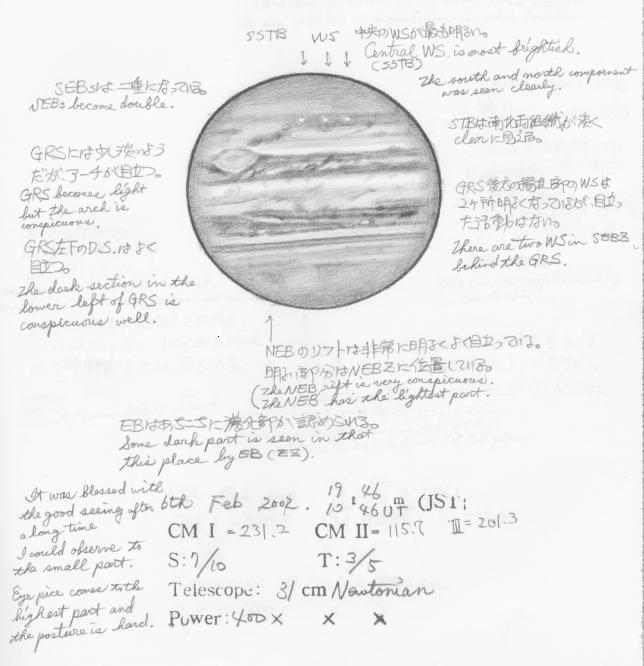 SSTB WS 中央のWSが最も明るい。
Central WS. is most brightish.
(SSTB)
The south and north compornent
was seen clearly.
SEBsは二重になっている。
SEBs become double.
STBは南北両組織が濃く
clearに見える。
GRSには少し淡いよう
だが、アーチが目立つ。
GRS becomes light
but the arch is
conspicuous.
GRS左下のD.S.はよく
目立つ。
The dark section in the
lower left of GRS is
conspicuous well.
GRS後方の攪乱部のWSは
2ヶ所明るくなっているが、目立っ
た活動はない。
There are two WS in SEBZ
behind the GRS.
NEBのリフトは非常に明るくよく目立っている。
明るい部分はNEBZに位置している。
(The NEB rift is very conspicuous.
(The NEB has the lightest part.
EBはあちこちに濃化部が認められる。
Some dark part is seen in that
this place by EB (EZ).
It was blessed with
the good seeing after
a long time
I could observe to
the small part.
Eye pice comes to the
highest part and
the posture is hard.
6th Feb 2002. 19 : 46 m (JST)
10 46 UT
CM I = 231.2 CM II = 115.7 III = 201.3
S: 7/10 T: 3/5
Telescope: 31 cm Newtonian
Power: 400 × × ×